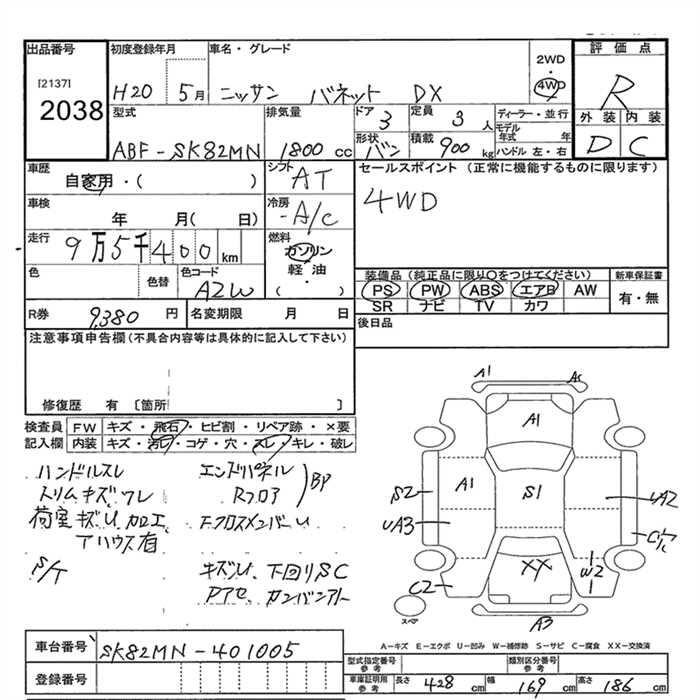 出品番号
[2137]
2038
初度登録年月
H20 5月
車名・グレード
ニッサン バネット DX
2WD
・
4WD
評価点
R
外装 内装
D C
型式
ABF-SK82MN
排気量
1800 cc
ドア
3
定員
3 人
形状
バン
積載
900 kg
ディーラー・並行
モデル年式 年
ハンドル 左・右
車歴
自家用・( )
シフト
AT
セールスポイント (正常に機能するものに限ります)
4WD
車検
年 月( 日)
冷房
A/C
走行
9万5千400 km
燃料
ガソリン
軽油
・
( )
色
色替
色コード
A2W
装備品 (純正品に限り○をつけてください)
PS PW ABS エアB AW
SR ナビ TV カワ
新車保証書
有・無
R券 9,380 円
名変期限 月 日
後日品
注意事項申告欄 (不具合内容等は具体的に記入して下さい)
修復歴 有 [箇所 ]
検査員記入欄
FW キズ・飛石・ヒビ割・リペア跡・×要
内装 キズ・汚れ・コゲ・穴・スレ・キレ・破レ
ハンドルスレ
トリムキズ、ワレ
荷室キズU、加工、
アハウス有
S/T
エンドパネル
Rフロア
BP
FクロスメンバーU
キズU、下回りSC
Pアセ、カンバンアト
A1
A1
A1
S2
A1
S1
UA2
UA3
C2
XX
W2
A3
スペア
A-キズ E-エクボ U-凹み W-補修跡 S-サビ C-腐食 XX-交換済
車台番号
SK82MN-401005
登録番号
型式指定番号
参考
類別区分番号
参考
車庫証明用
参考
長さ 428 cm
幅 169 cm
高さ 186 cm